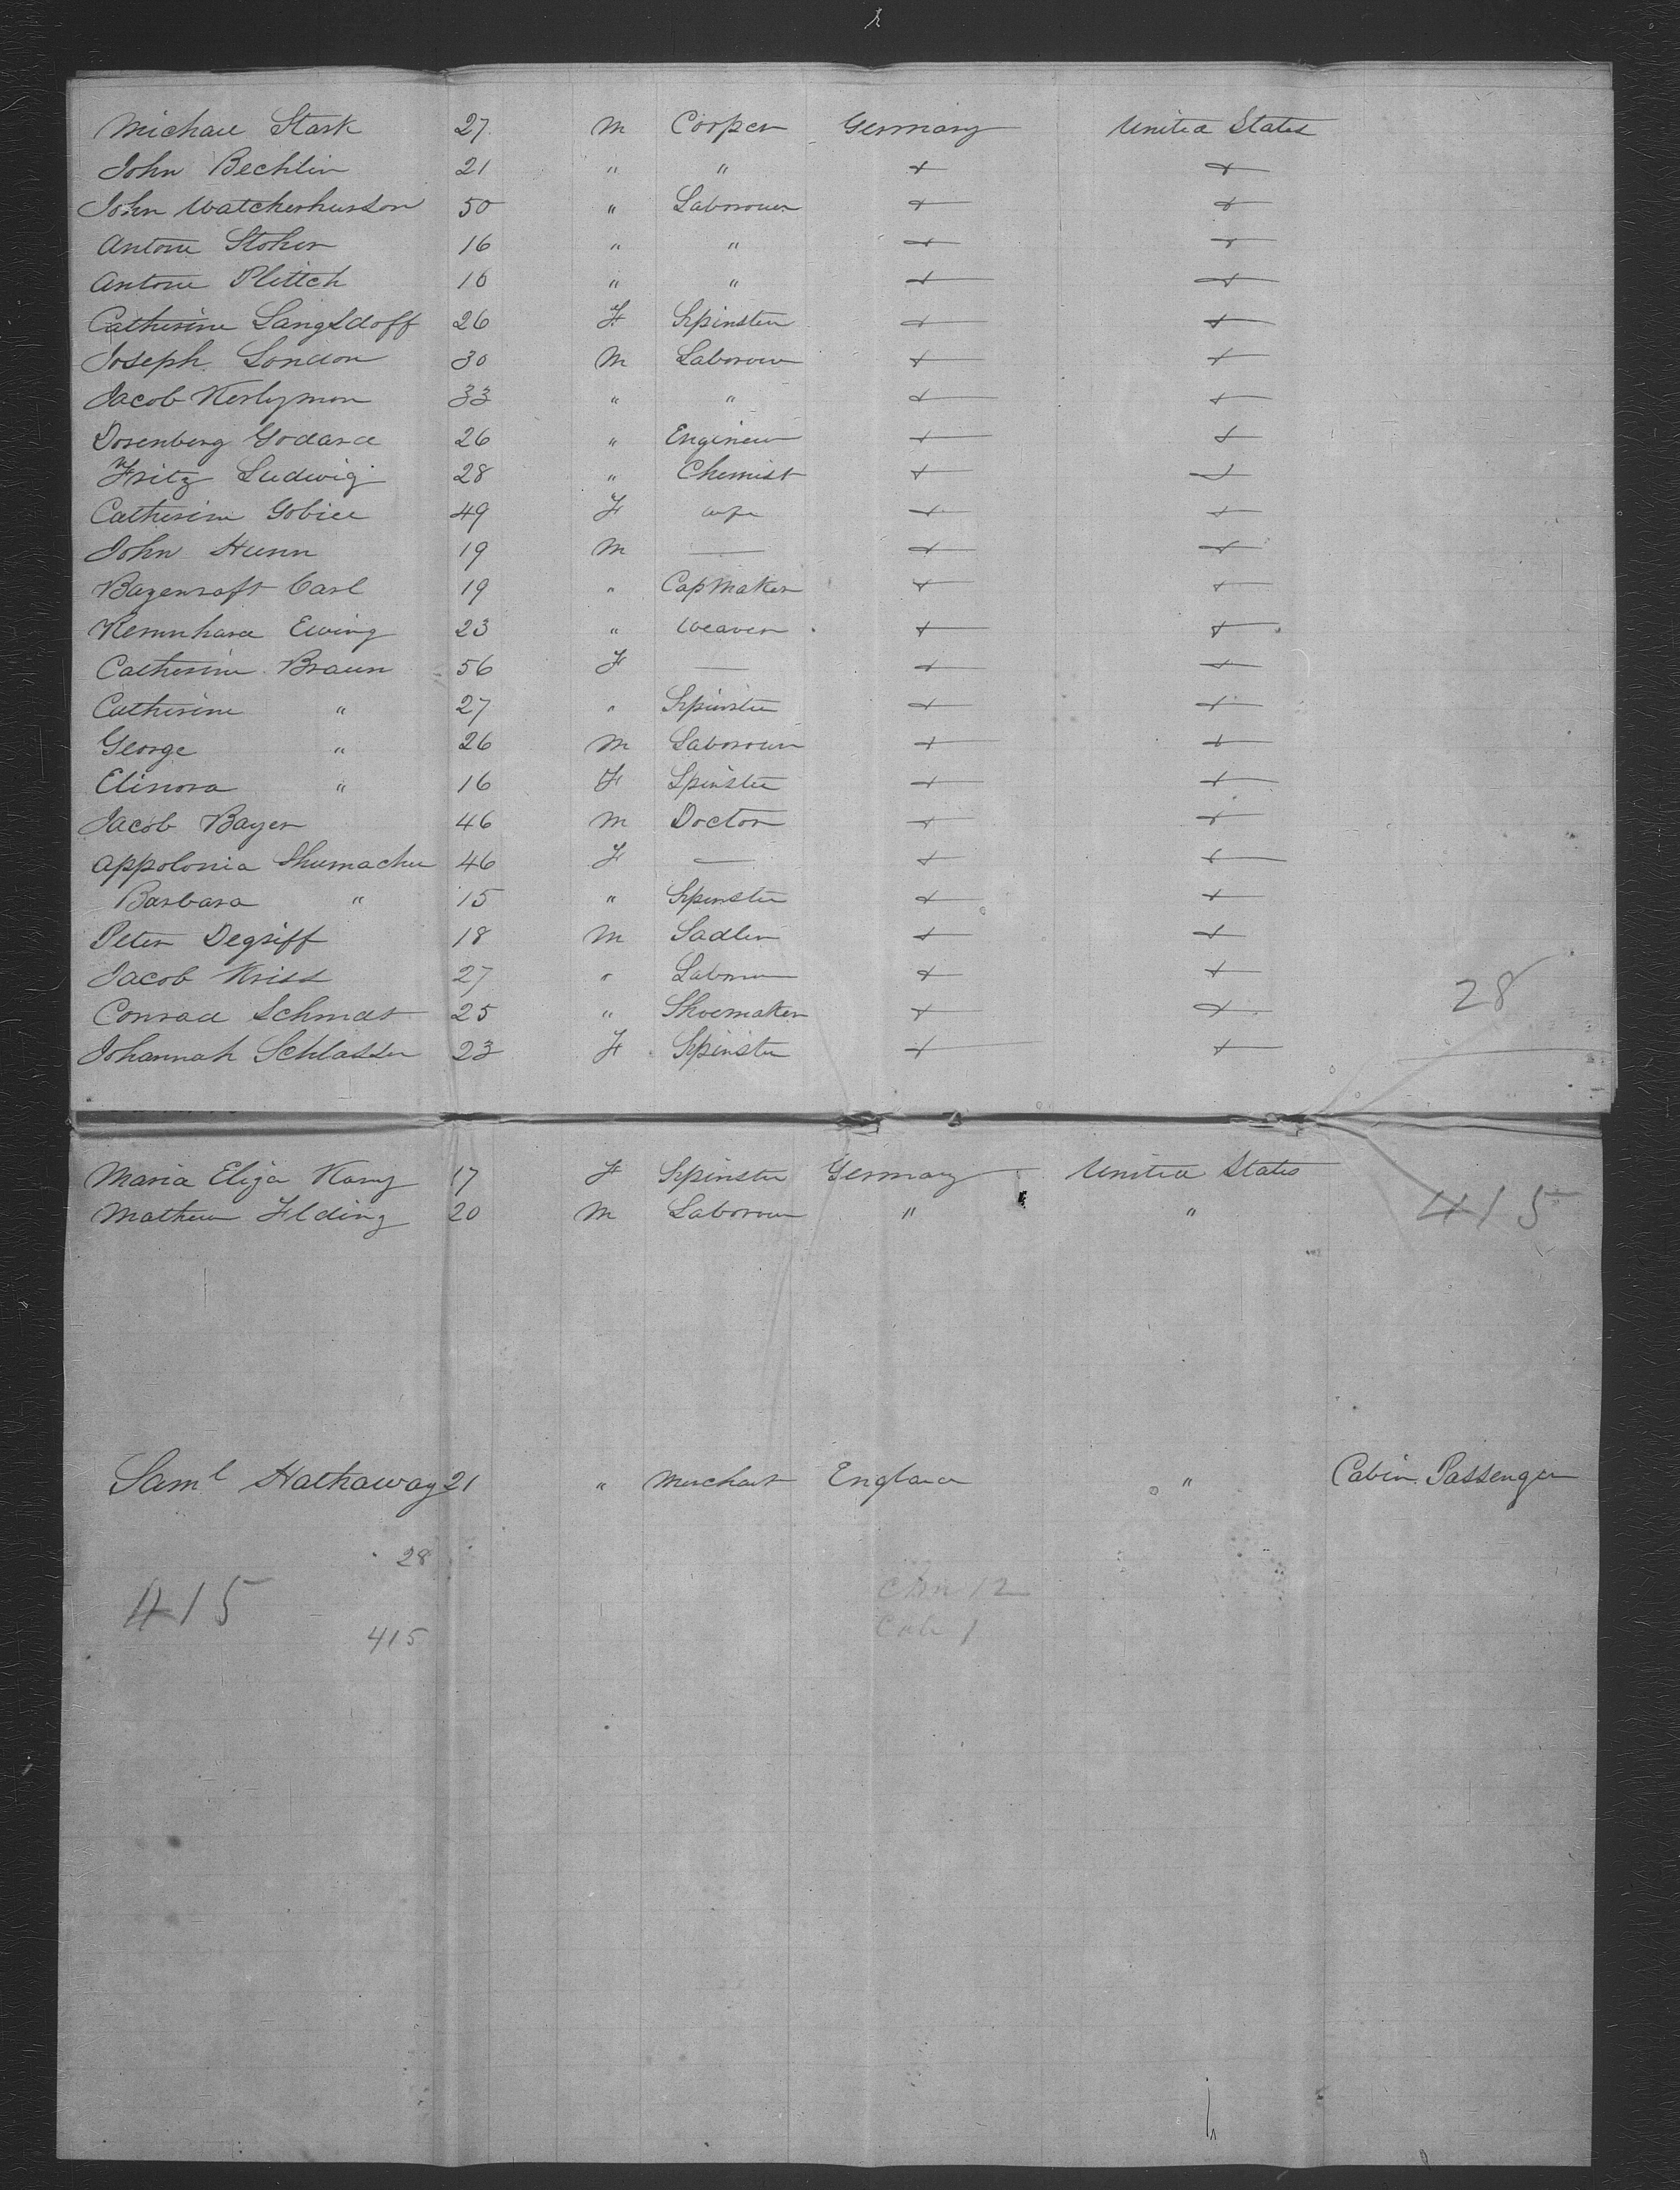 Michael Stark 27 M Cooper Germany United States
John Bechlin 21 " " + +
John Watcherhuston 50 " Labourer + +
Antone Stoker 16 " " + +
Antone Plittch 16 " " + +
Catherine Langsdoff 26 F Spinster + +
Joseph London 30 M Labourer + +
Jacob Kerlymon 33 " " + +
Dosenberg Godard 26 " Engineer + +
Fritz Ludwig 28 " Chemist + +
Catherine Gobiee 49 F wife + +
John Hunn 19 M — + +
Bayensaft Carl 19 " Cap Maker + +
Kernhard Ewing 23 " Weaver + +
Catherine Braun 56 F — + +
Catherine " 27 " Spinster + +
George " 26 M Labourer + +
Elinora " 16 F Spinster + +
Jacob Bayer 46 M Doctor + +
Appolonia Shumacher 46 F — + +
Barbara " 15 " Spinster + +
Peter Degriff 18 M Sadler + +
Jacob Kriss 27 " Laborer + +
28
Conrad Schmidt 25 " Shoemaker + +
Johannah Schlasser 23 F Spinster + +
Maria Eliza Kany 17 F Spinster Germany United States
Mathew Ilding 20 M Labourer " "
415
Saml Hathaway 21 " Merchant England " Cabin Passenger
28
415
415
12
Cab 1